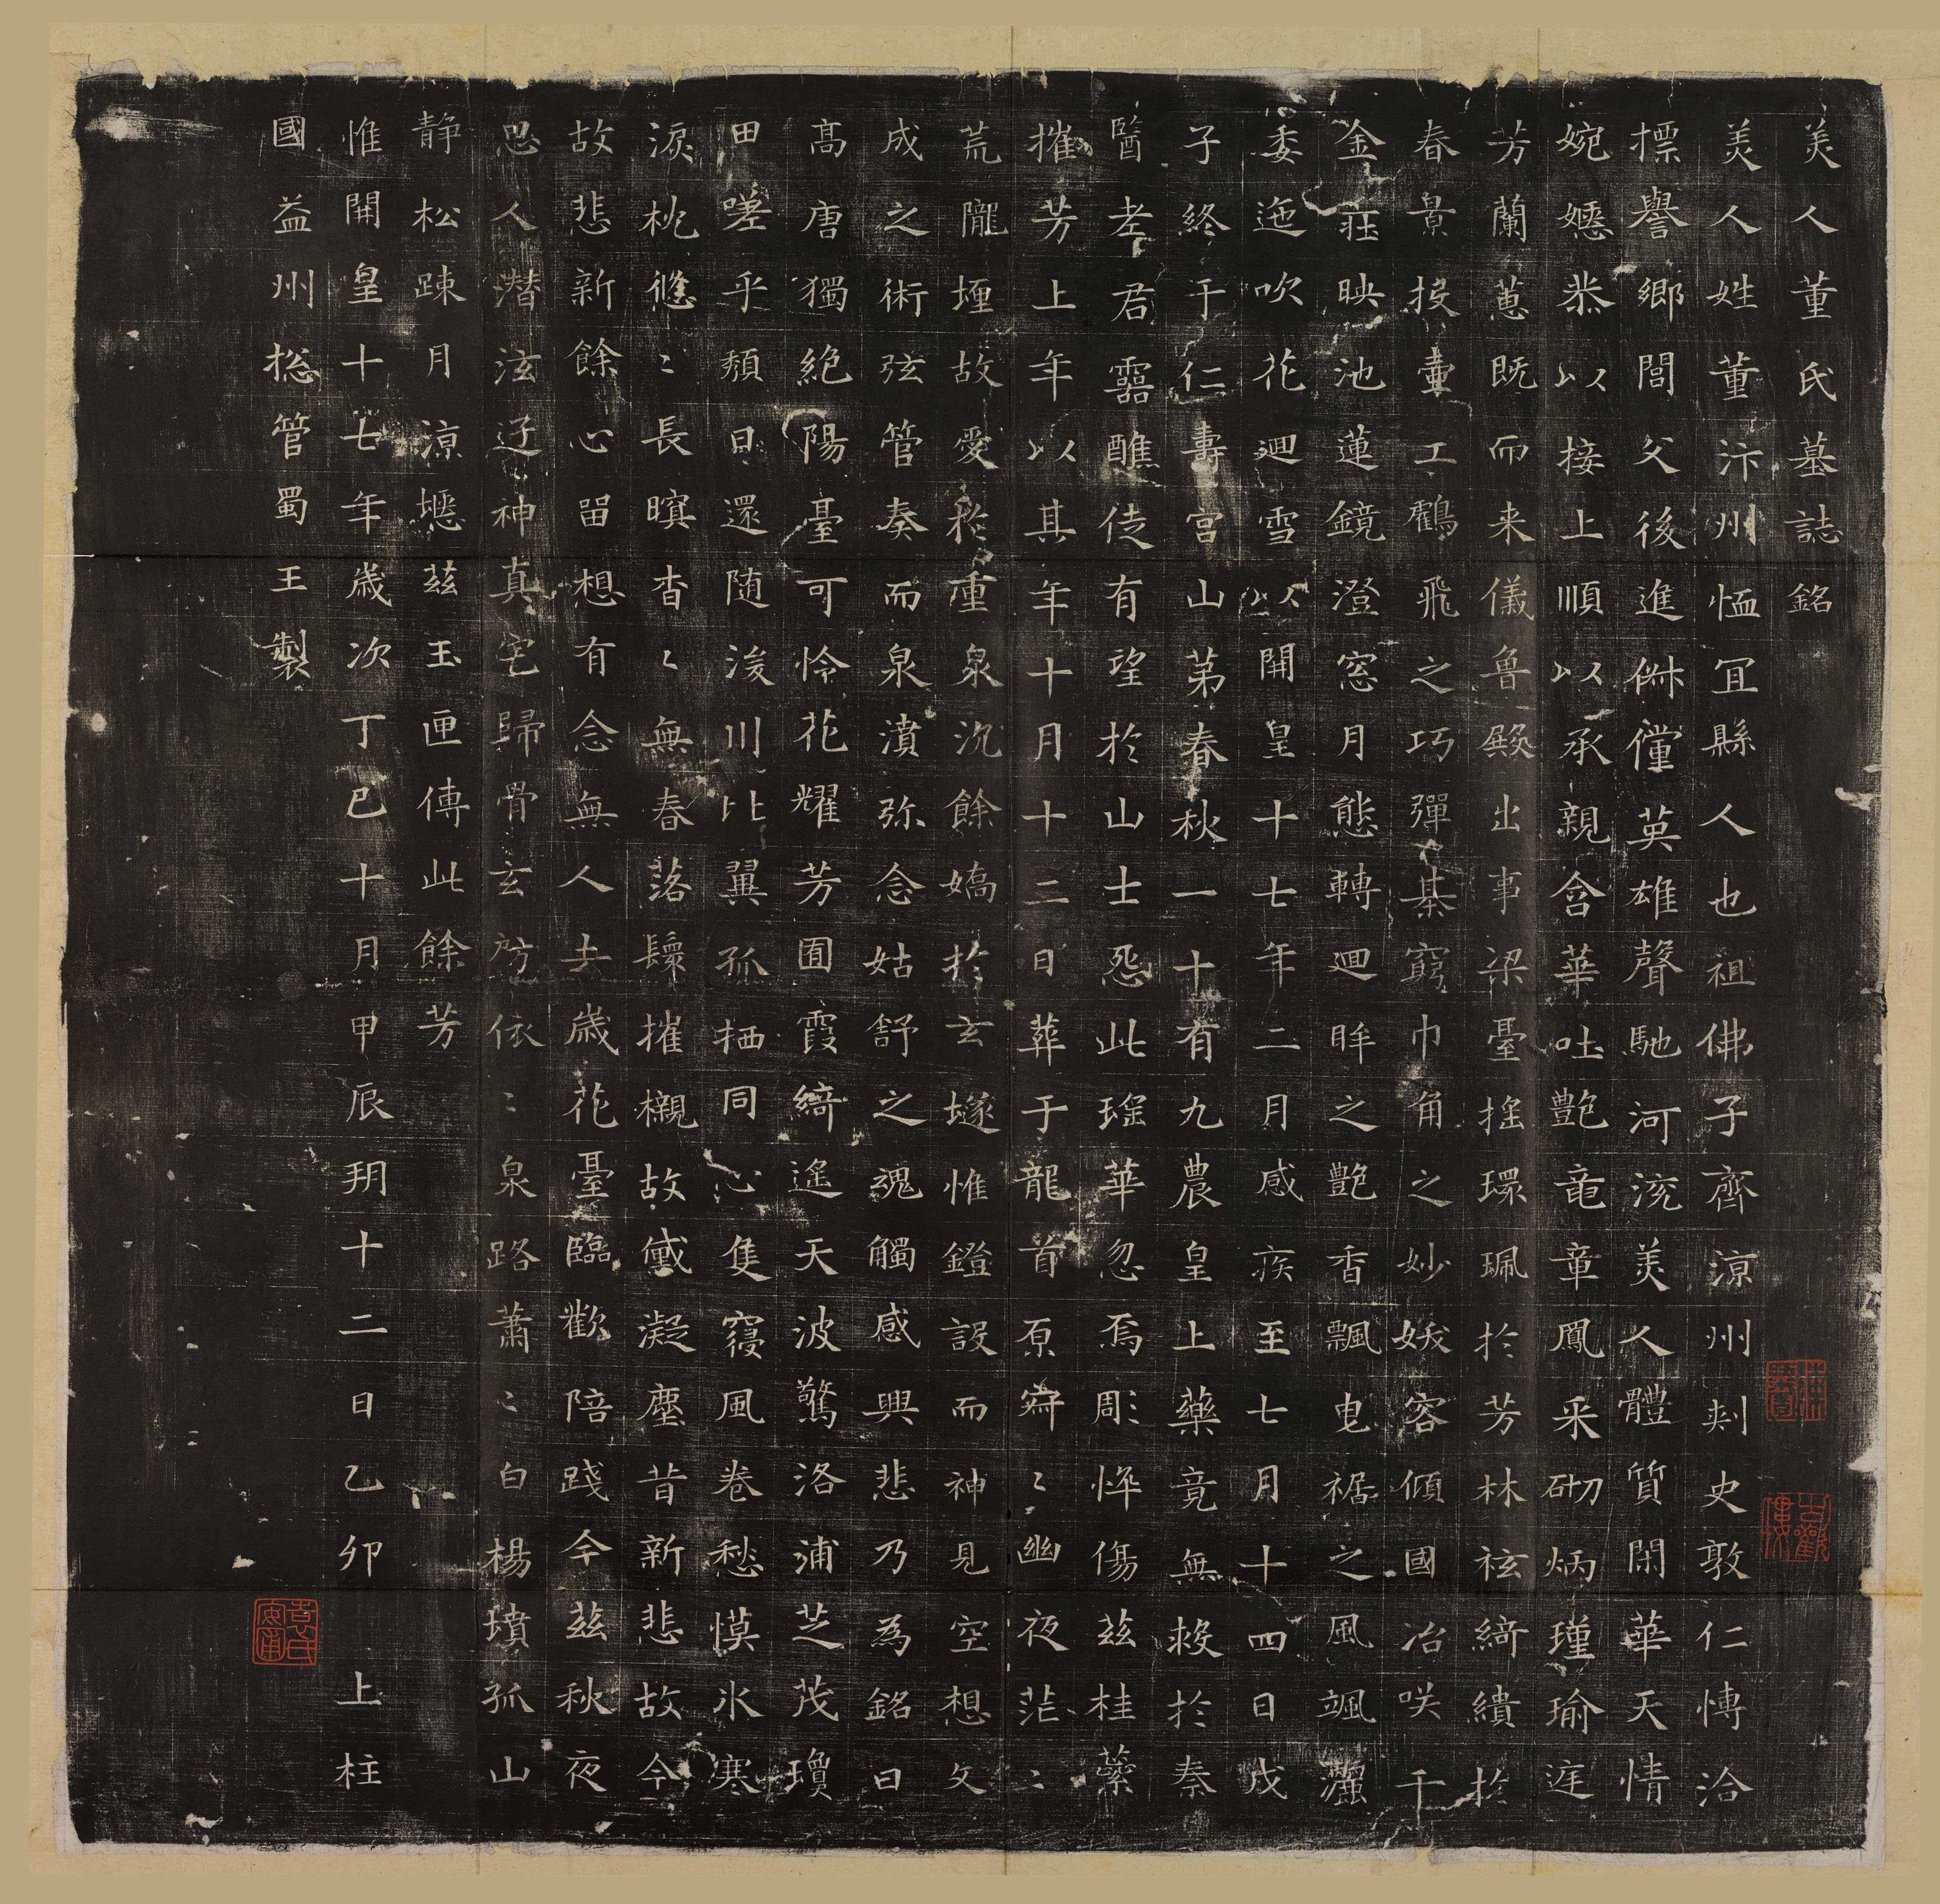 美人董氏墓誌銘
美人姓董汴州恤冝縣人也祖佛子齊涼州刾史敦仁愽洽
摽譽鄉閭父後進俶儻英雄聲馳河浼美人體質閑華天情
婉嫕恭以接上順以承親含華吐艶竜章鳳采砌炳瑾瑜庭
芳蘭蕙既而来儀魯殿出事梁臺搖環珮於芳林袨綺繢於
春景投壷工鶴飛之巧彈棊窮巾角之妙妖容傾國冶咲千
金莊映池蓮鏡澄窓月態轉迴眸之艶香飄曳裾之風颯灑
委迤吹花迴雪以開皇十七年二月感疾至七月十四日戊
子終于仁壽宮山第春秋一十有九農皇上藥竟無救於秦
醫老君靈醮徒有望於山士怨此瑤華忽焉彫悴傷茲桂蘂
摧芳上年以其年十月十二日葬于龍首原寂〻幽夜茫〻
荒隴埋故愛於重泉沉餘嬌於玄㙜惟鐙設而神見空想文
成之術弦管奏而泉濆弥念姑舒之魂觸感興悲乃為銘曰
高唐獨絶陽臺可怜花耀芳囿霞綺遙天波驚洛浦芝茂瓊
田嗟乎頽日還随浚川比翼孤栖同心隻寑風卷愁慔氷寒
淚枕悠〻長暝杳〻無春落鬟摧櫬故黛凝塵昔新悲故今
故悲新餘心留想有念無人去歲花臺臨歡陪踐今茲秋夜
思人潛泫迓神真宅歸骨玄房依〻泉路蕭〻白楊墳孤山
静松踈月涼瘞茲玉匣傳此餘芳
惟開皇十七年歲次丁巳十月甲辰朔十二日乙卯 上柱
國益州揔管蜀王製